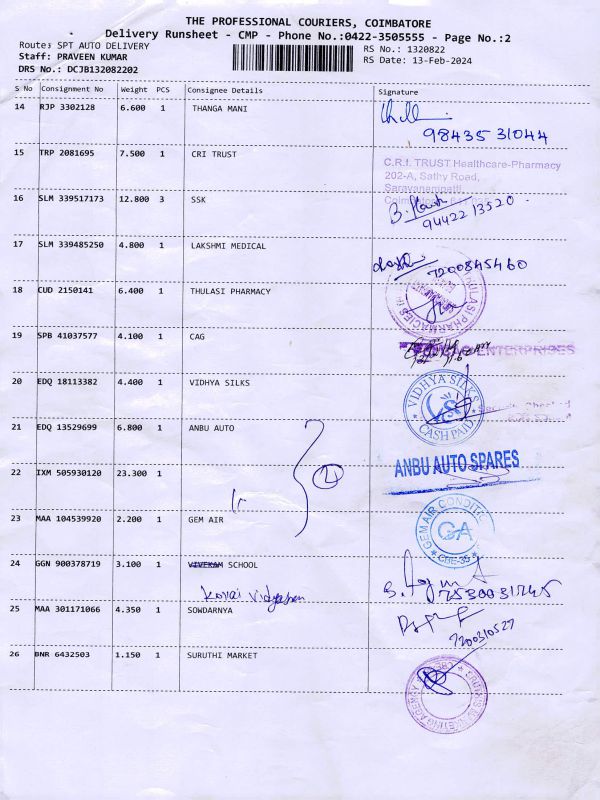 THE PROFESSIONAL COURIERS, COIMBATORE
Delivery Runsheet - CMP - Phone No.:0422-3505555 - Page No.:2
Route: SPT AUTO DELIVERY
RS No.: 1320822
Staff: PRAVEEN KUMAR
RS Date: 13-Feb-2024
DRS No.: DCJB132082202
S No Consignment No Weight PCS Consignee Details Signature
14 RJP 3302128 6.600 1 THANGA MANI
98435 31044
15 TRP 2081695 7.500 1 CRI TRUST
C.R.I. TRUST Healthcare-Pharmacy
202-A, Sathy Road,
Saravanampatti,
16 SLM 339517173 12.800 3 SSK
94422 13520
17 SLM 339485250 4.800 1 LAKSHMI MEDICAL
7200845460
18 CUD 2150141 6.400 1 THULASI PHARMACY
THULASI PHARMACIES
19 SPB 41037577 4.100 1 CAG
ENTERPRISES
20 EDQ 18113382 4.400 1 VIDHYA SILKS
VIDHYA SILKS
VS
CASH PAID
21 EDQ 13529699 6.800 1 ANBU AUTO
ANBU AUTO SPARES
22 IXM 505930120 23.300 1
4
23 MAA 104539920 2.200 1 GEM AIR
GEM AIR CONDIT
GA
CBE-35
24 GGN 900378719 3.100 1 VIVEKAM SCHOOL
Kovai Vidyashram
7530031745
25 MAA 301171066 4.350 1 SOWDARNYA
7200310527
26 BNR 6432503 1.150 1 SURUTHI MARKET